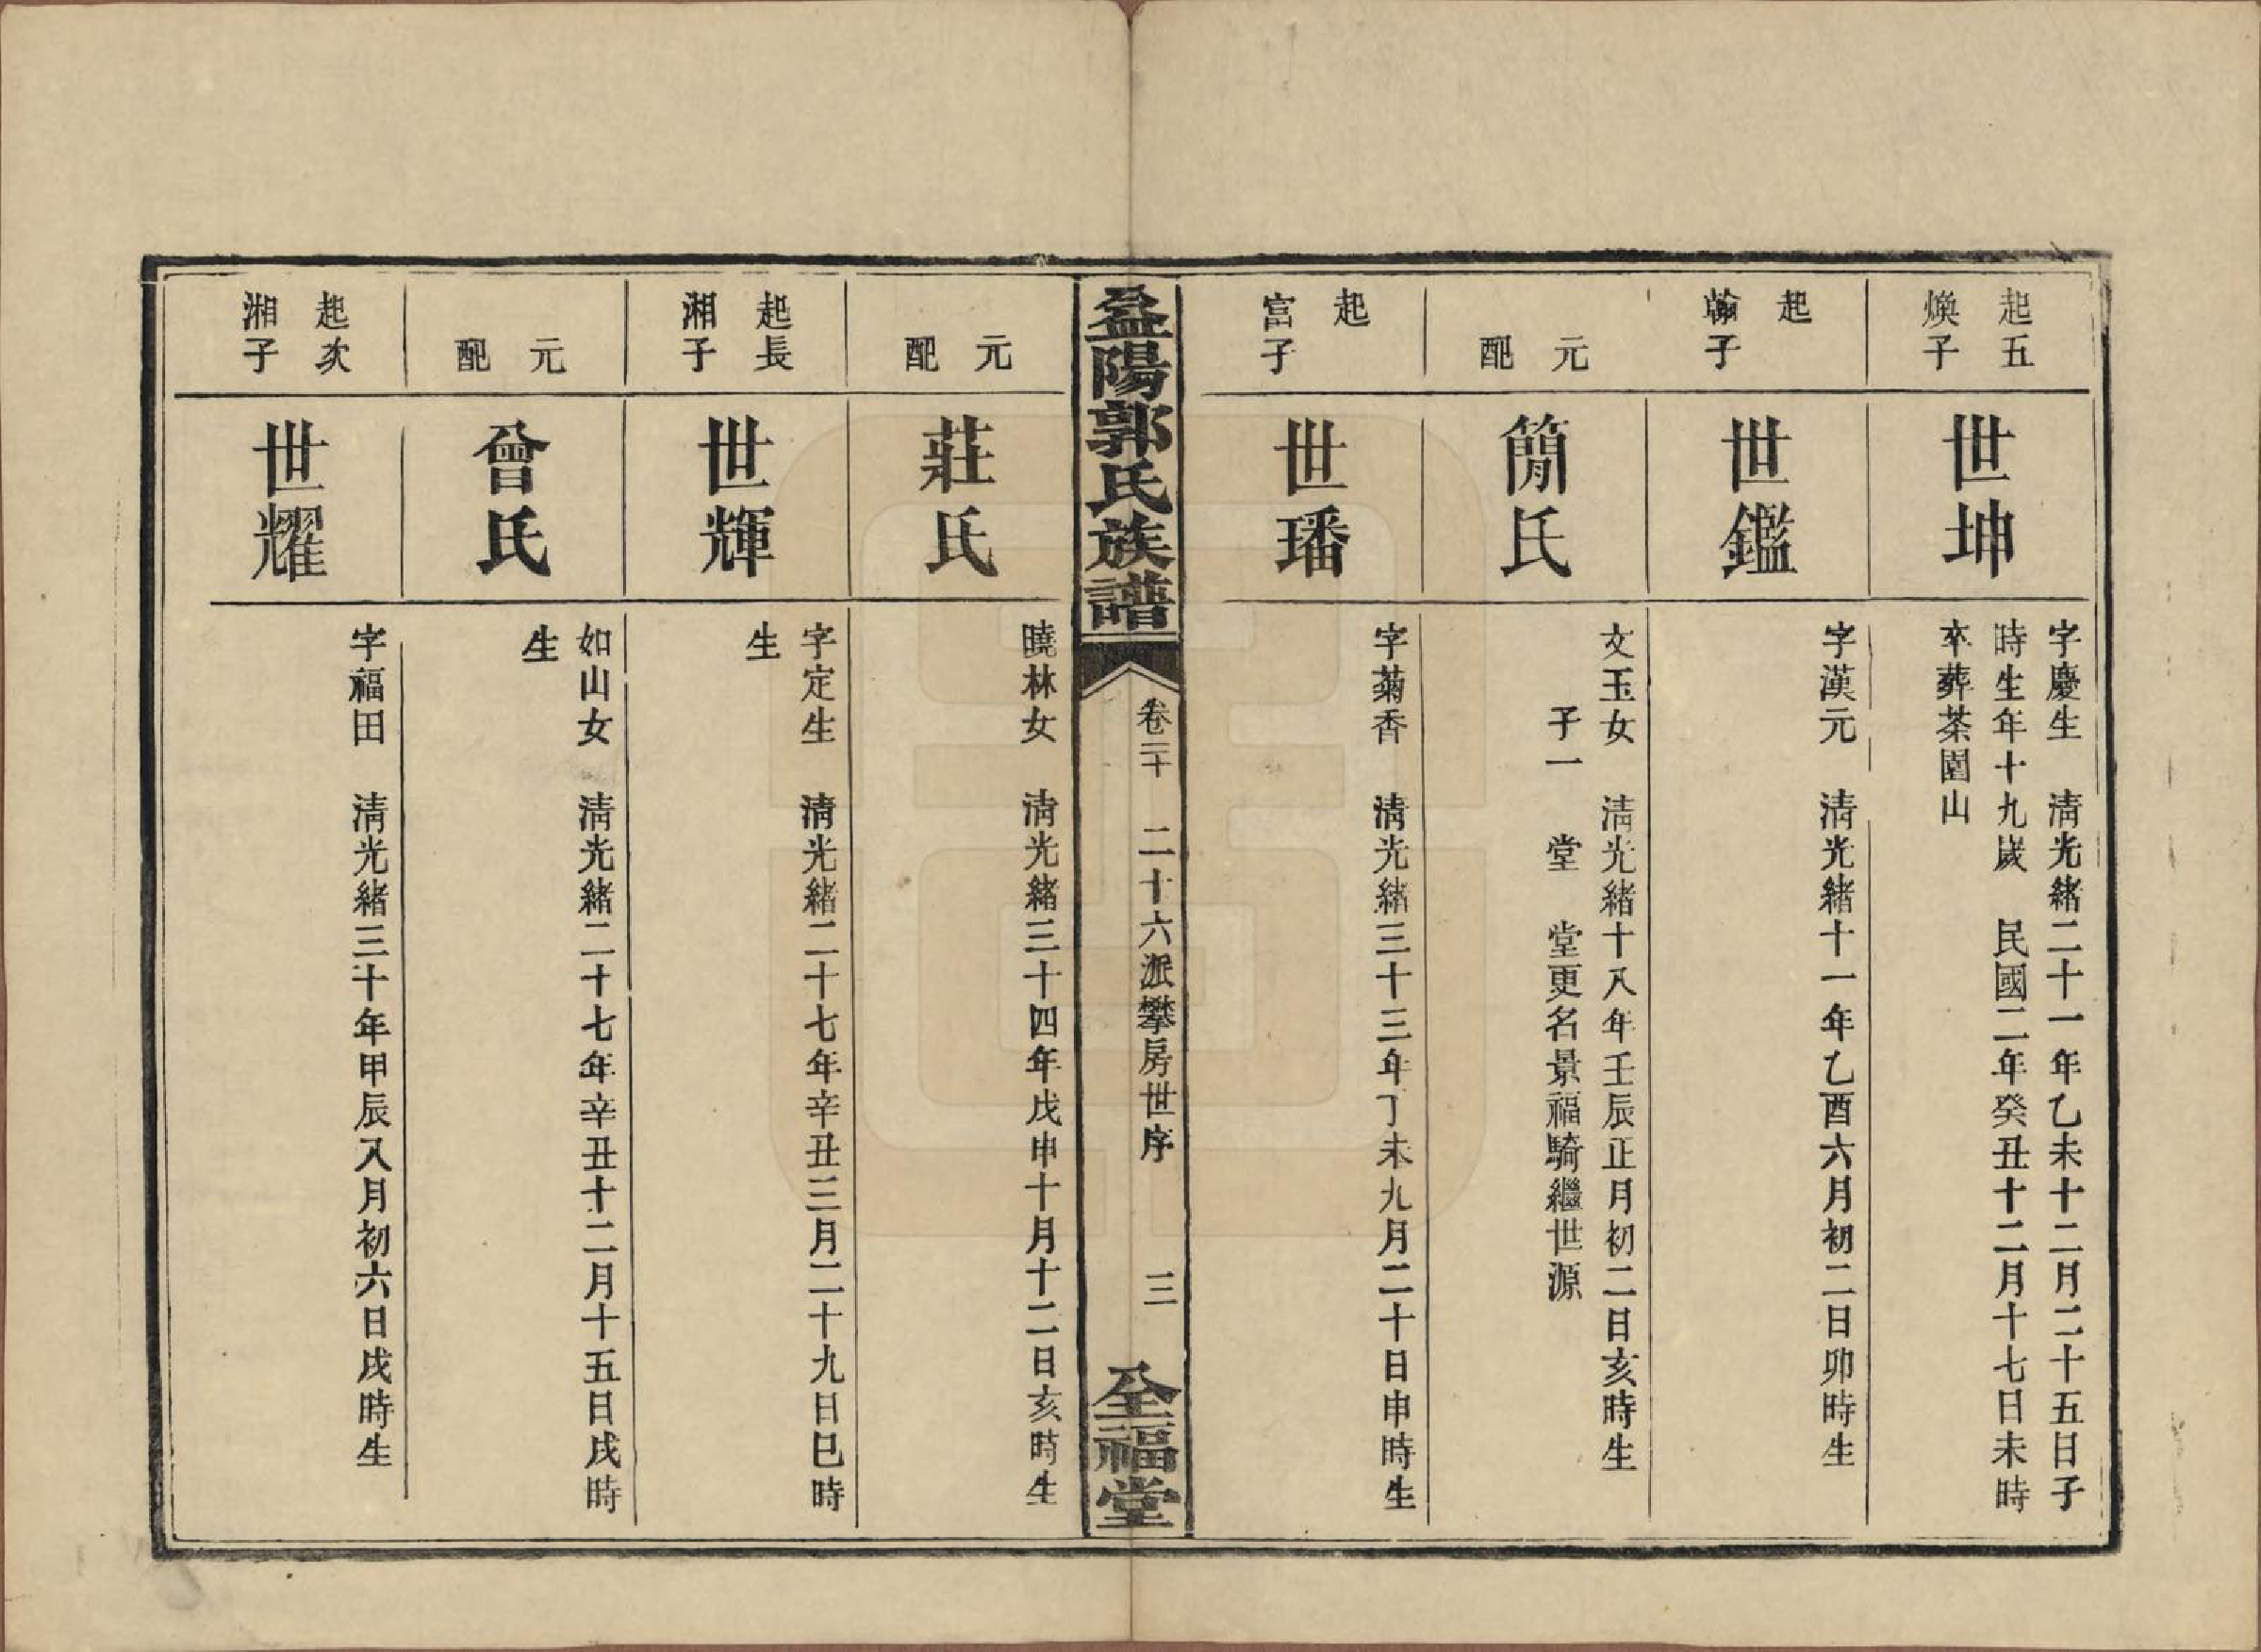 起五
煥子
世坤
字慶生　清光緒二十一年乙未十二月二十五日子
時生年十九歲　民國二年癸丑十二月十七日未時
卒葬茶園山
起
翰子
世鑑
字漢元　清光緒十一年乙酉六月初二日卯時生
元
配
簡氏
文玉女　清光緒十八年壬辰正月初二日亥時生
子一　堂　堂更名景福騎繼世源
起
富子
世璠
字菊香　清光緒三十三年丁未九月二十日申時生
益陽郭氏族譜
卷二十　二十六派攀房世序　三
全福堂
元
配
莊氏
曉林女　清光緒三十四年戊申十月十二日亥時生
起長
湘子
世輝
字定生　清光緒二十七年辛丑三月二十九日巳時
生
元
配
曾氏
如山女　清光緒二十七年辛丑十二月十五日戌時
生
起次
湘子
世耀
字福田　清光緒三十年甲辰八月初六日戌時生